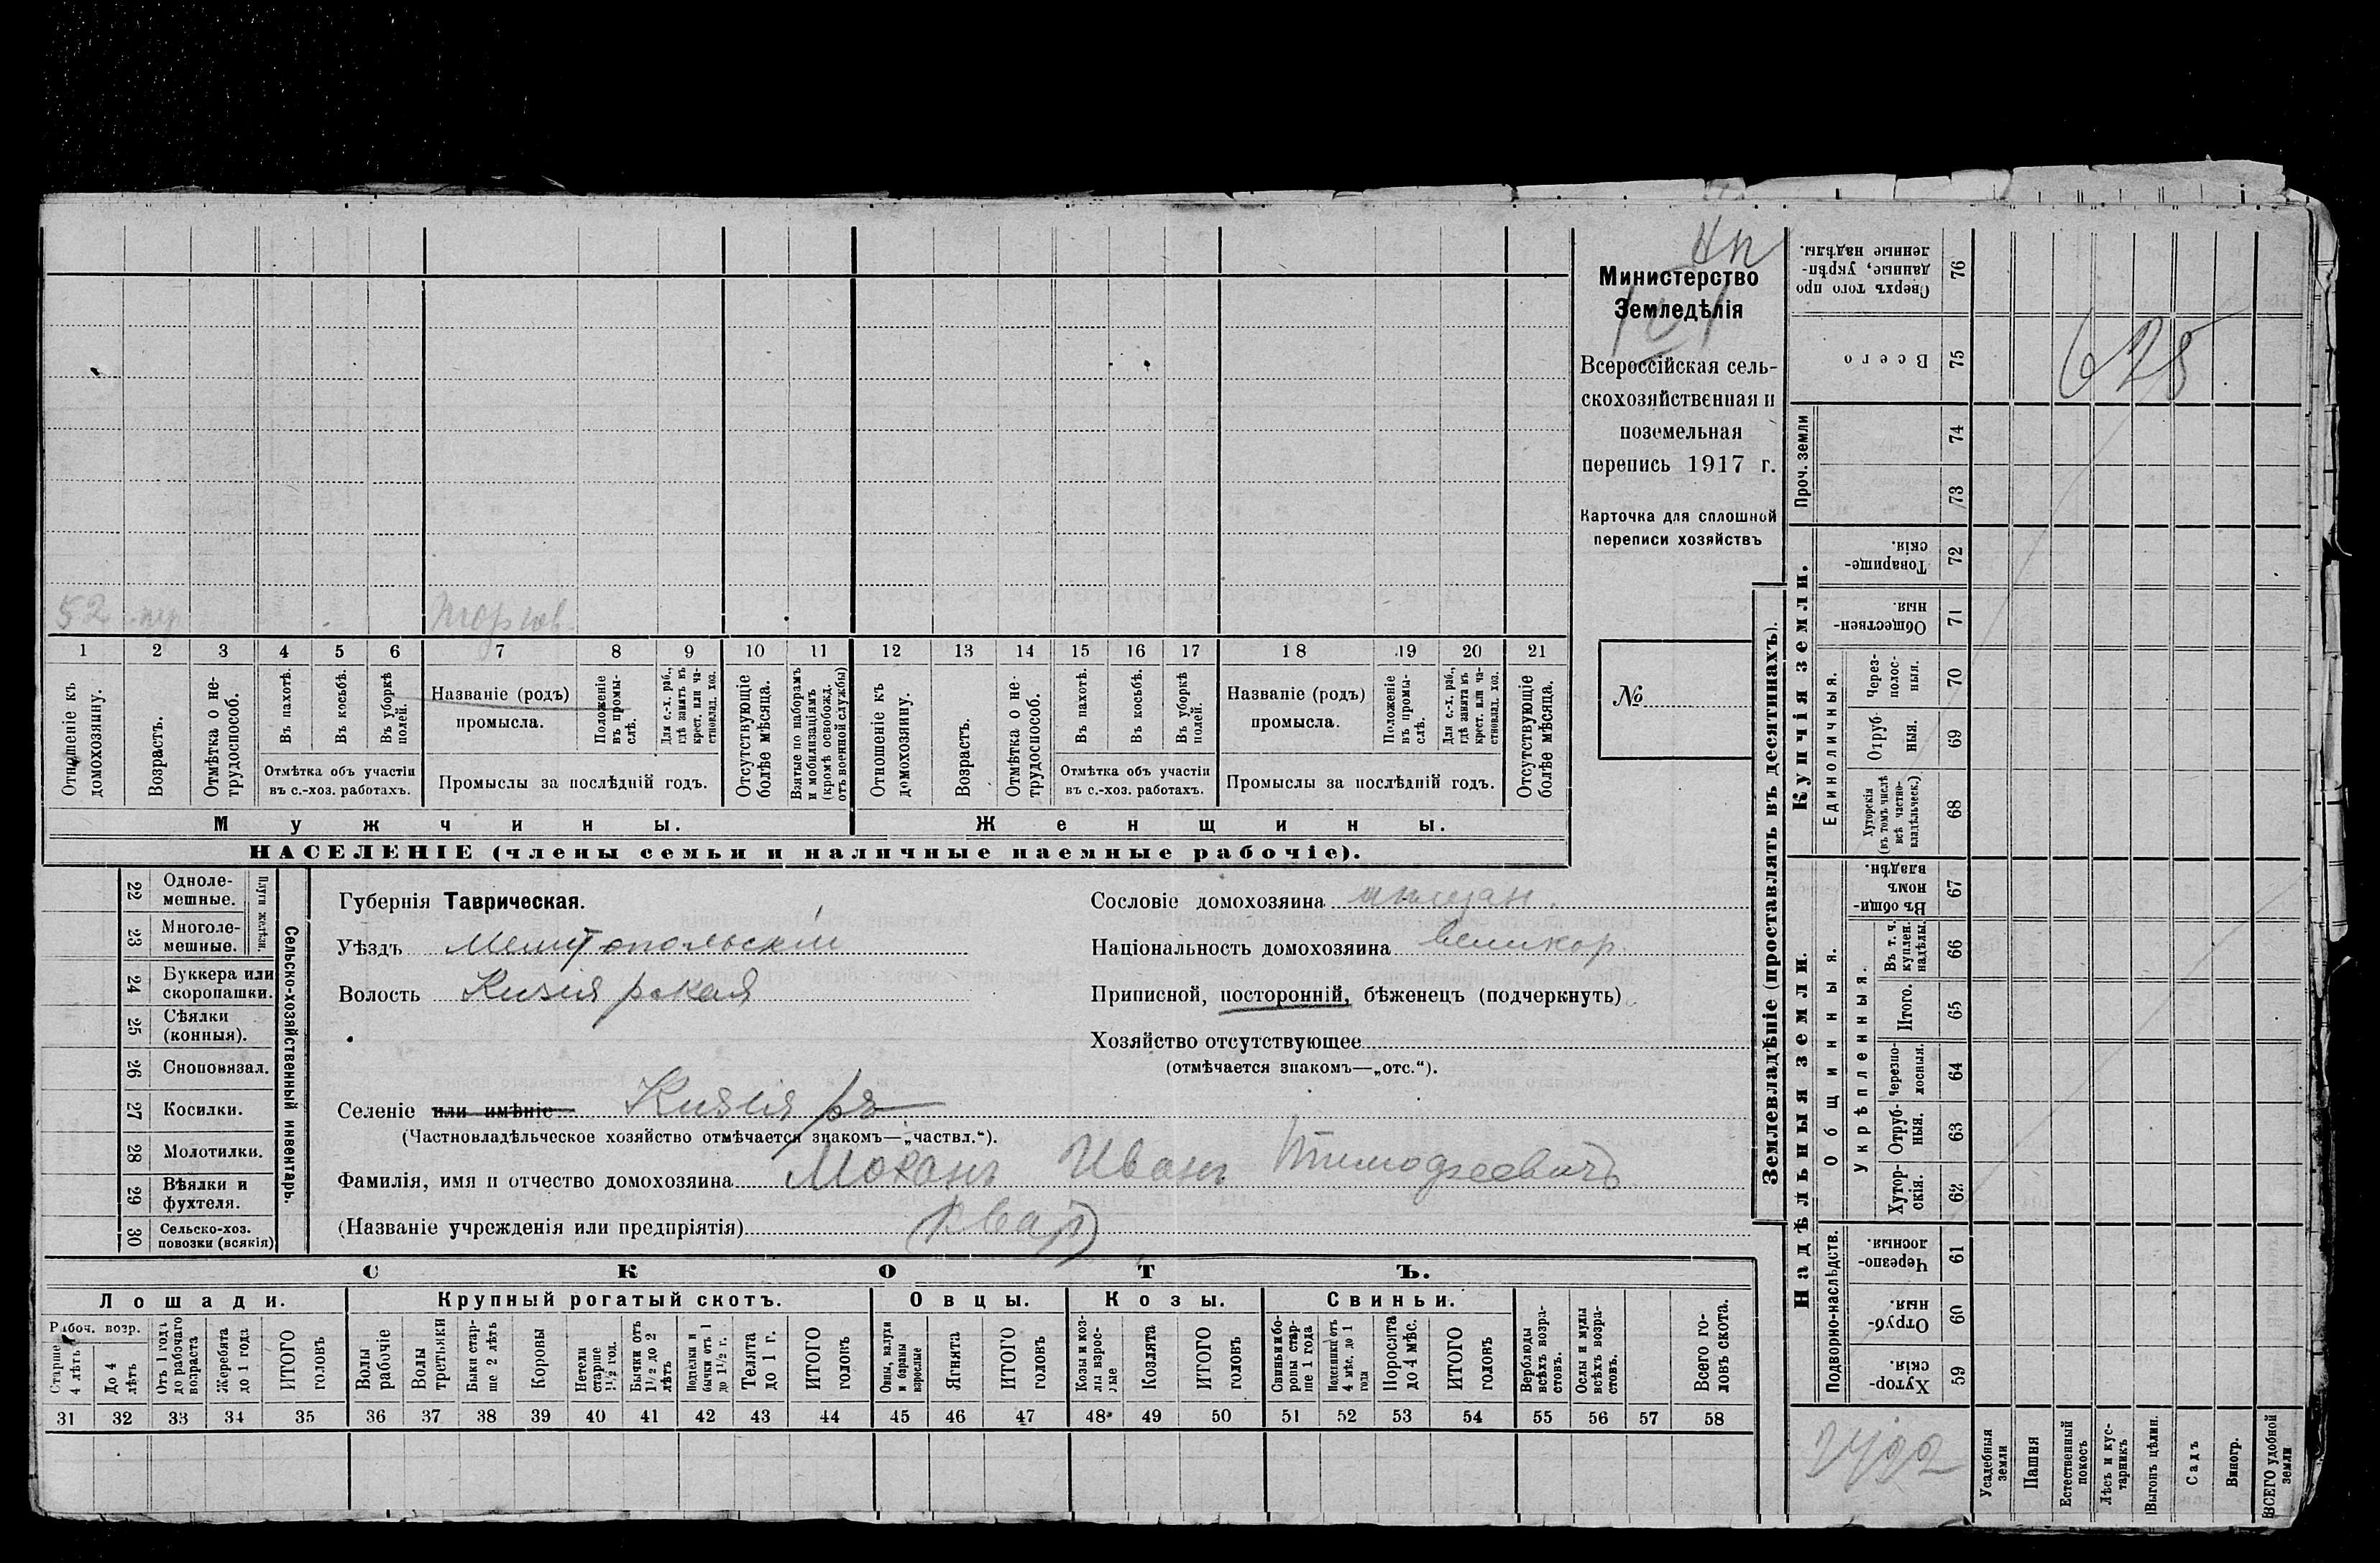 Министерство
Земледѣлія
Всероссійская сель-
скохозяйственная и
поземельная
перепись 1917 г.
Карточка для сплошной
переписи хозяйствъ
№
52
торгов.
1 2 3 4 5 6 7 8 9 10 11 12 13 14 15 16 17 18 19 20 21
Отношеніе къ домохозяину.
Возрастъ.
Отмѣтка о не-
трудоспособ.
Въ пахотѣ.
Въ косьбѣ.
Въ уборкѣ полей.
Названіе (родъ)
промысла.
Положеніе въ промы-
слѣ.
Для с.-х. раб., гдѣ занятъ въ крест. или ча-
стновлад. хоз.
Отсутствующіе болѣе мѣсяца.
Взятые по наборамъ и мобилизаціямъ (кромѣ освобожд. отъ военной службы)
Отношеніе къ домохозяину.
Возрастъ.
Отмѣтка о не-
трудоспособ.
Въ пахотѣ.
Въ косьбѣ.
Въ уборкѣ полей.
Названіе (родъ)
промысла.
Положеніе въ промы-
слѣ.
Для с.-х. раб., гдѣ занята въ крест. или ча-
стновлад. хоз.
Отсутствующіе болѣе мѣсяца.
Отмѣтка объ участіи
въ с.-хоз. работахъ.
Промыслы за послѣдній годъ.
Отмѣтка объ участіи
въ с.-хоз. работахъ.
Промыслы за послѣдній годъ.
Мужчины.
Женщины.
НАСЕЛЕНІЕ (члены семьи и наличные наемные рабочіе).
22 Одноле-
мешные.
23 Многоле-
мешные.
Плуги желѣзн.
24 Буккера или
скоропашки.
25 Сѣялки
(конныя).
26 Сноповязал.
27 Косилки.
28 Молотилки.
29 Вѣялки и
фухтеля.
30 Сельско-хоз.
повозки (всякія)
Сельско-хозяйственный инвентарь.
Губернія Таврическая.
Уѣздъ Мелитопольскій
Волость
Селеніе или имѣніе
(Частновладѣльческое хозяйство отмѣчается знакомъ—„частвл.“).
Фамилія, имя и отчество домохозяина Моханъ Иванъ Тимофеевичъ
(Названіе учрежденія или предпріятія) (квар)
Сословіе домохозяина мѣщан.
Національность домохозяина великор.
Приписной, посторонній, бѣженецъ (подчеркнуть)
Хозяйство отсутствующее
(отмѣчается знакомъ—„отс.“).
СКОТЪ.
Лошади.
Крупный рогатый скотъ.
Овцы.
Козы.
Свиньи.
Рабоч. возр.
Старше 4 лѣтъ
До 4 лѣтъ
Отъ 1 года до рабочаго возраста
Жеребята до 1 года
ИТОГО головъ
Волы рабочіе
Волы третьяки
Быки стар-
ше 2 лѣтъ
Коровы
Нетели старше 1½ год.
Бычки отъ 1½ до 2 лѣтъ
Подтелки и бычки отъ 1 до 1½ г.
Телята до 1 г.
ИТОГО головъ
Овцы, валухи и бараны взрослые
Ягнята
ИТОГО головъ
Козы и коз-
лы взрос-
лые
Козлята
ИТОГО головъ
Свиньи и бо-
ровы стар-
ше 1 года
Подсвинки отъ 4 мѣс. до 1 года
Поросята до 4 мѣс.
ИТОГО головъ
Верблюды всѣхъ возра-
стовъ.
Ослы и мулы всѣхъ возра-
стовъ.
Всего го-
ловъ скота.
31 32 33 34 35 36 37 38 39 40 41 42 43 44 45 46 47 48 49 50 51 52 53 54 55 56 57 58
Землевладѣніе (проставлять въ десятинахъ).
Купчія земли.
Надѣльныя земли.
Проч. земли
Единоличныя.
Общинныя.
Укрѣпленныя.
Подворно-наслѣдств.
Сверхъ того про
данные, укрѣп-
ленные надѣлы. 76
Всего 75
74
73
Товарище-
скія. 72
Обществен-
ныя. 71
Через-
полос-
ныя. 70
Отруб-
ныя. 69
Хуторскія (въ томъ числѣ всѣ частно-
владѣльческ.) 68
Въ общи-
номъ
владѣн. 67
Въ т. ч. куплен. надѣлы. 66
Итого. 65
Черезпо-
лосныя. 64
Отруб-
ныя. 63
Хутор-
скія. 62
Черезпо-
лосныя. 61
Отруб-
ныя. 60
Хутор-
скія. 59
625
Усадебныя земли
Пашня
Естественный покосъ
Лѣсъ и кус-
тарникъ
Выгонъ цѣлин.
Садъ
Виногр.
ВСЕГО удобной земли